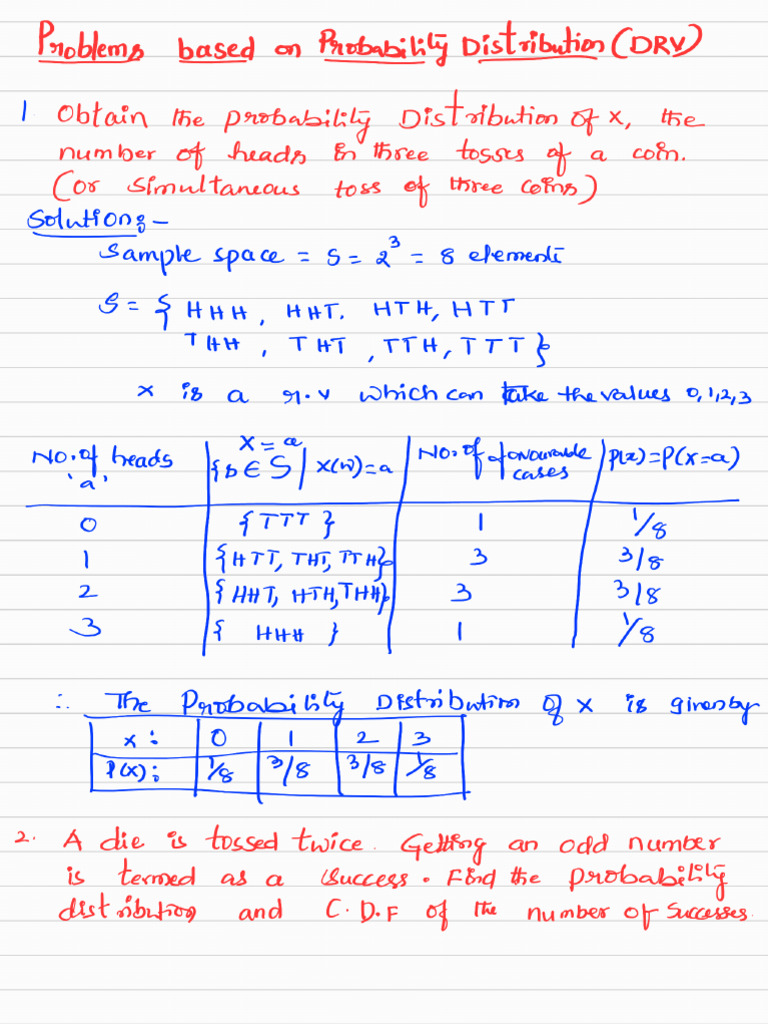 Problems based on Probability Distribution (DRV)
1. Obtain the probability Distribution of X, the
number of heads in three tosses of a coin.
(or simultaneous toss of three coins)
Solution:-
Sample space = S = 2³ = 8 elements
S = { HHH, HHT, HTH, HTT
THH, THT, TTH, TTT }
X is a r.v which can take the values 0,1,2,3
No. of heads 'a' | X = a {s ∈ S | X(w) = a | No. of favourable cases | P(x) = P(X=a)
0 | {TTT} | 1 | 1/8
1 | {HTT, THT, TTH} | 3 | 3/8
2 | {HHT, HTH, THH} | 3 | 3/8
3 | { HHH } | 1 | 1/8
∴ The Probability Distribution of X is given by
X : | 0 | 1 | 2 | 3
P(X) : | 1/8 | 3/8 | 3/8 | 1/8
2. A die is tossed twice. Getting an odd number
is termed as a success. Find the probability
distribution and C.D.F of the number of successes.